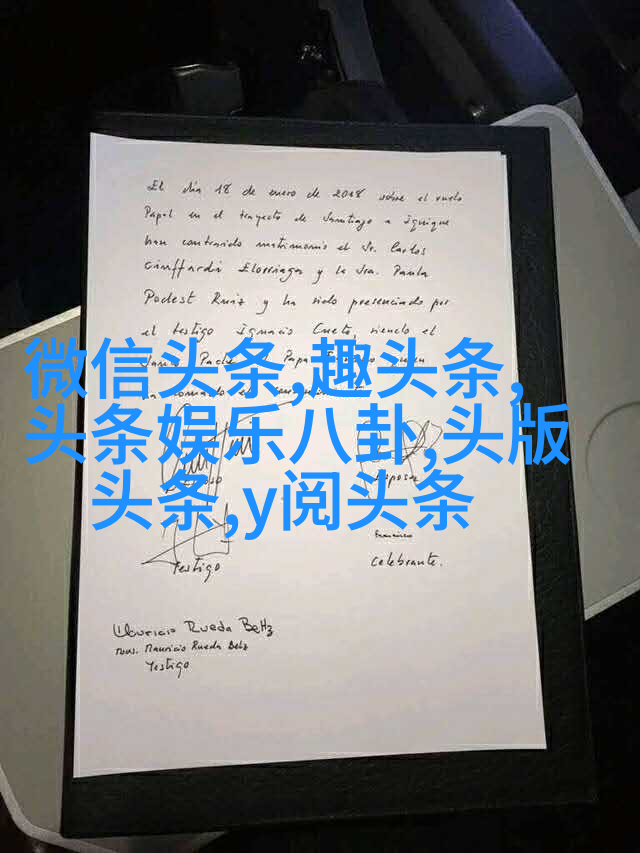 El día 18 de enero de 2018 sobre el vuelo
Papal en el trayecto de Santiago a Iquique
han contraido matrimonio el Sr. Carlos
Ciuffardi Elorriaga y la Sra. Paula
Podest Ruiz y ha sido presenciado por
el testigo Ignacio Cueto, siendo el
Santo Padre Papa
微信头条,趣头条,
头条娱乐八卦,头版
头条,y阅头条
Esposo
Esposa
Testigo
Franciscus
Celebrante.
Mauricio Rueda Beltz
Mons. Mauricio Rueda Beltz
Testigo